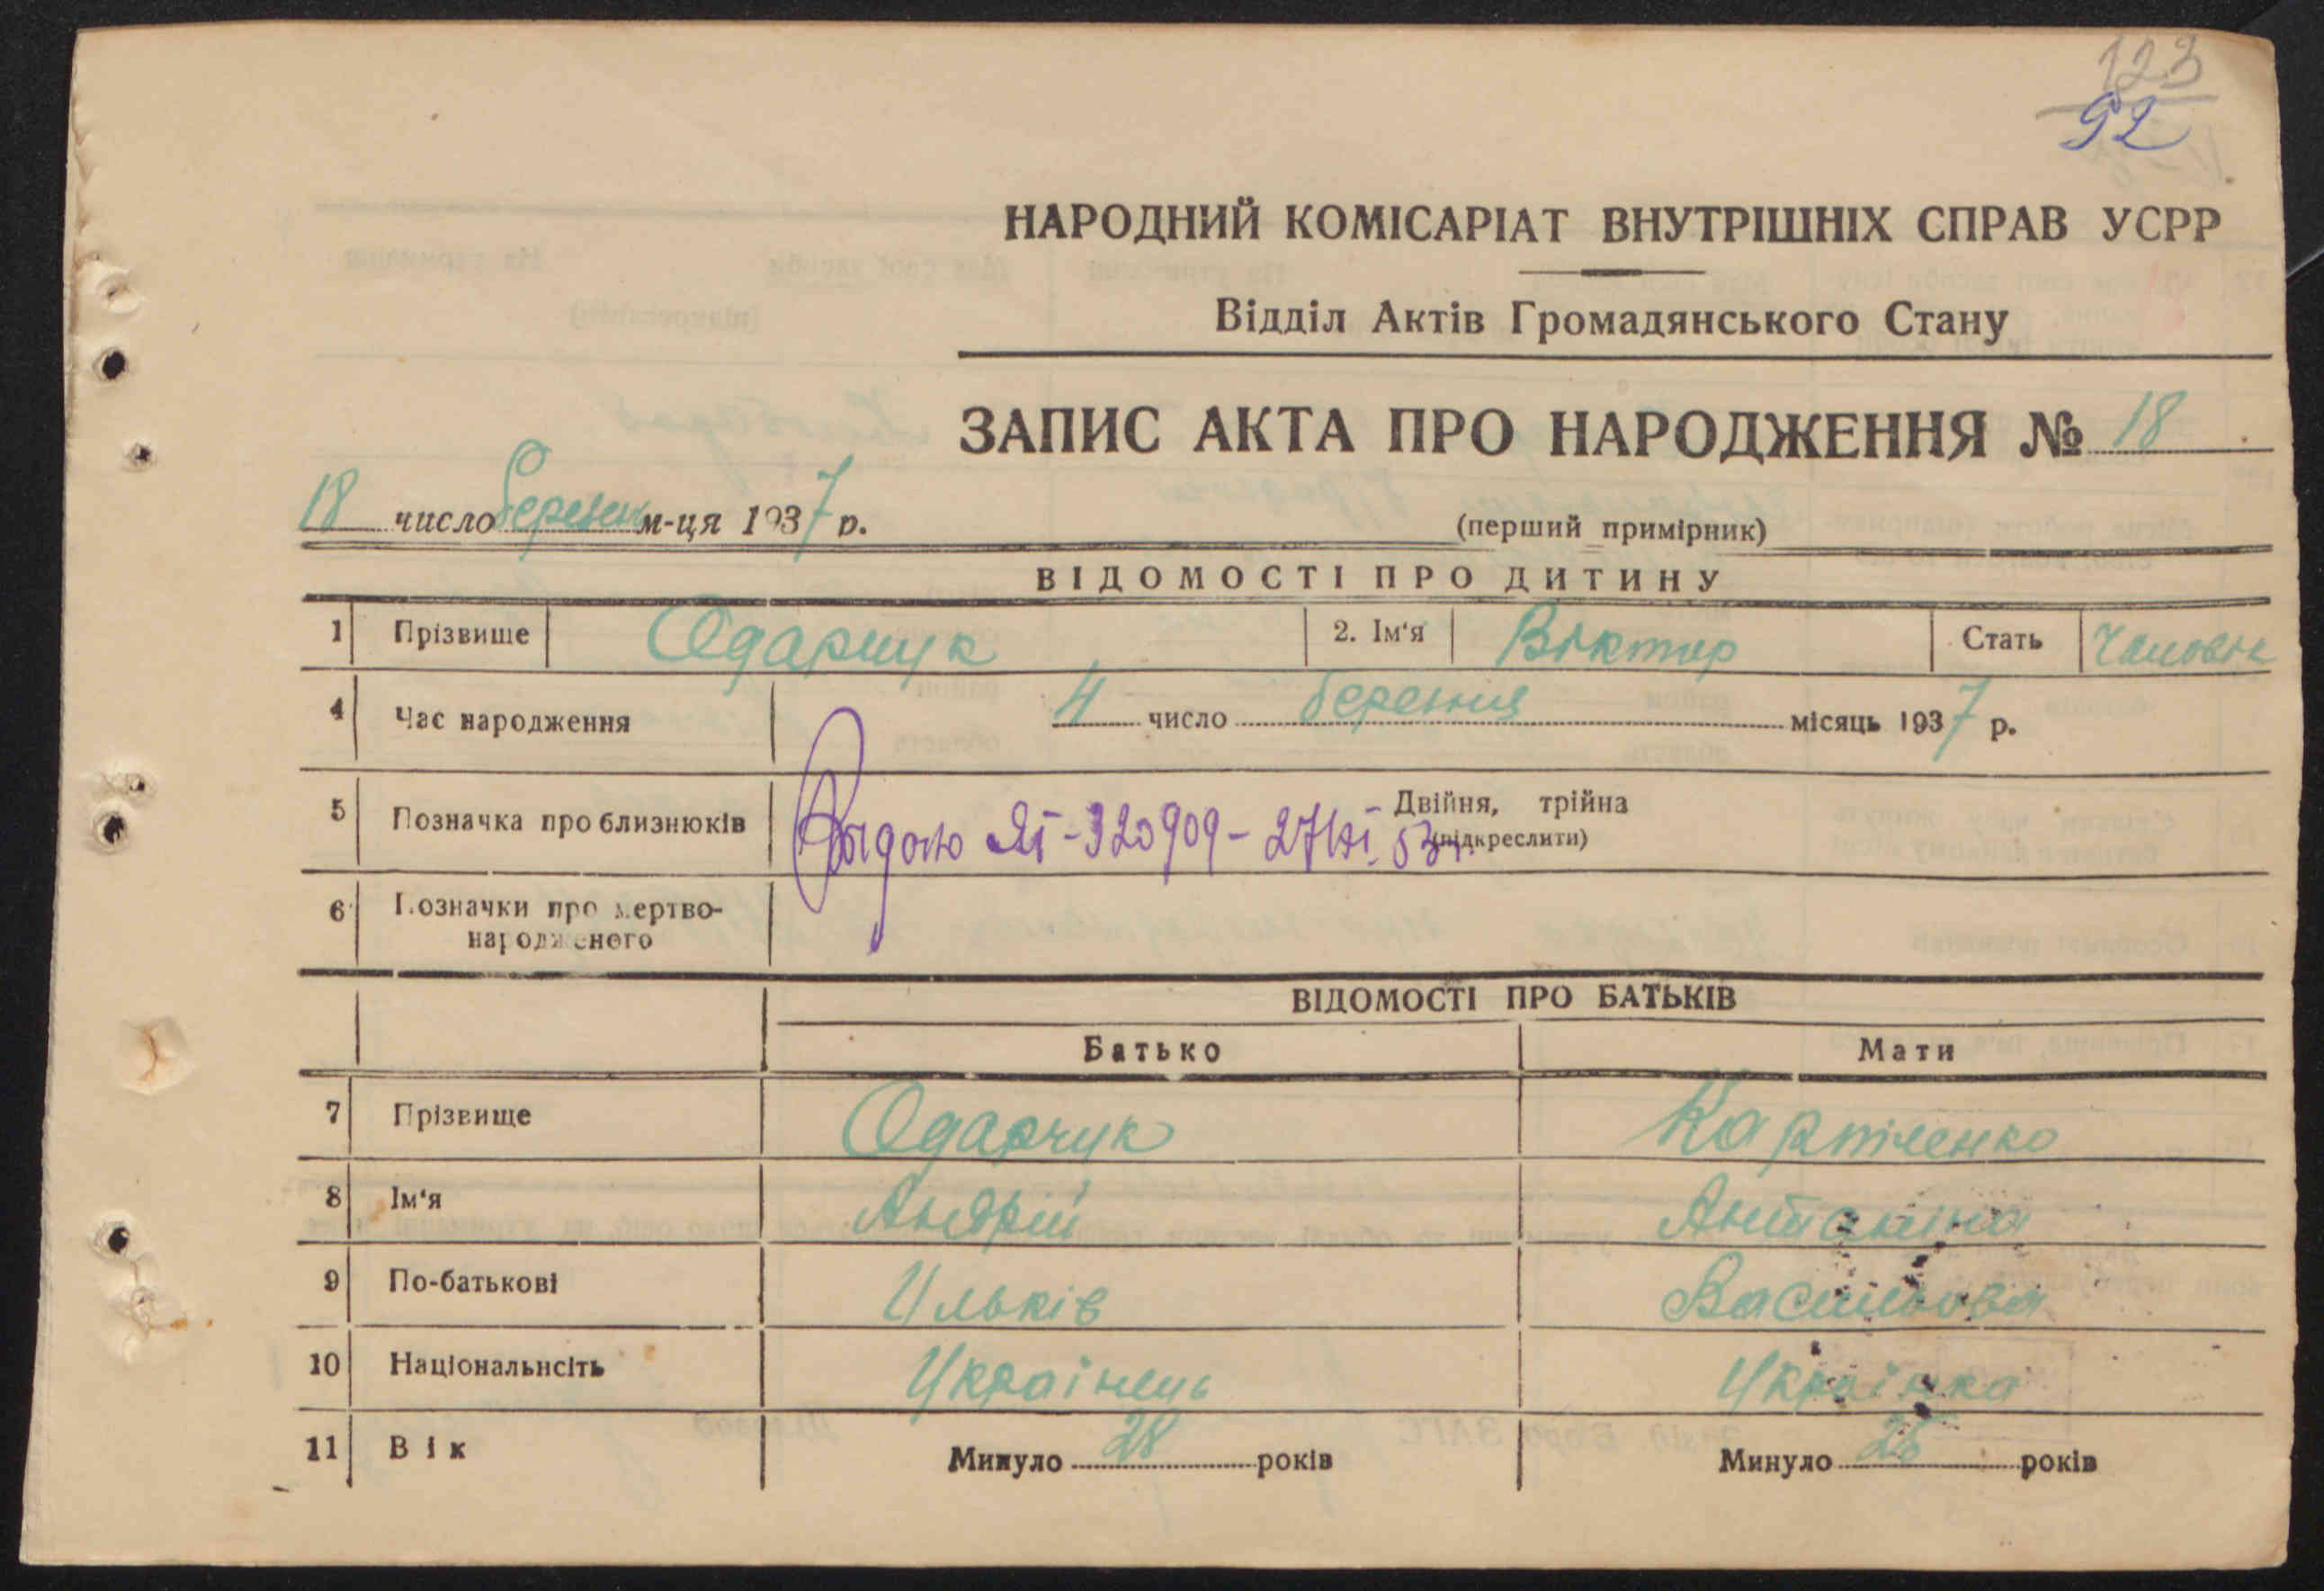 123
92
НАРОДНИЙ КОМІСАРІАТ ВНУТРІШНІХ СПРАВ УСРР
Відділ Актів Громадянського Стану
ЗАПИС АКТА ПРО НАРОДЖЕННЯ № 18
18 число березня м-ця 1937 р.
(перший примірник)
ВІДОМОСТІ ПРО ДИТИНУ
1 Прізвище Одарчук 2. Ім'я Віктор Стать Чоловік
4 Час народження 4 число березня місяць 1937 р.
5 Позначка про близнюків Двійня, трійна
(підкреслити)
320909
6 Позначки про мертво-
народженого
ВІДОМОСТІ ПРО БАТЬКІВ
Батько Мати
7 Прізвище Одарчук Карпіленко
8 Ім'я Андрій Антаніна
9 По-батькові Ильків Васильова
10 Національнсіть Українець Українка
11 Вік Минуло 28 років Минуло 25 років